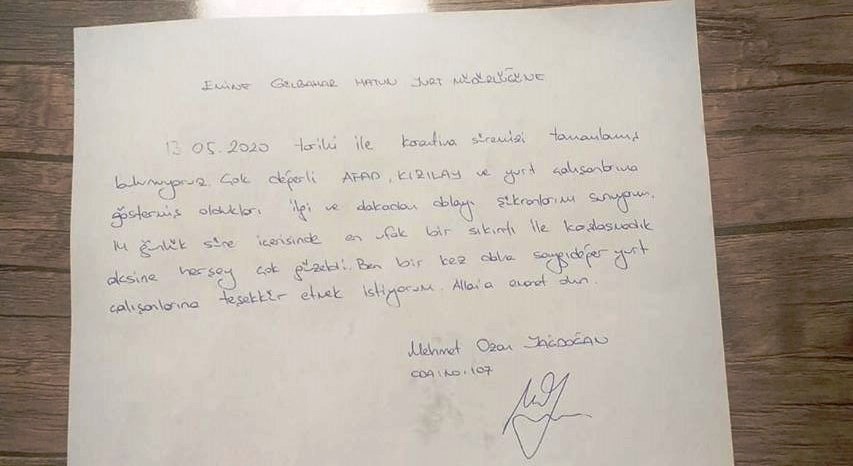 EMİNE GÜLBAHAR HATUN YURT MÜDÜRLÜĞÜNE
13 05.2020 tarihi ile karantina süremizi tamamlamış
bulunuyoruz. Çok değerli AFAD, KIZILAY ve yurt çalışanlarına
göstermiş oldukları ilgi ve alakadan dolayı şükranlarımı sunuyorum.
14 günlük süre içerisinde en ufak bir sıkıntı ile karşılaşmadık
aksine herşey çok güzeldi. Ben bir kez daha saygıdeğer yurt
çalışanlarına teşekkür etmek istiyorum. Allah'a emanet olun.
Mehmet Ozan YAĞDOĞAN
ODA:NO:107